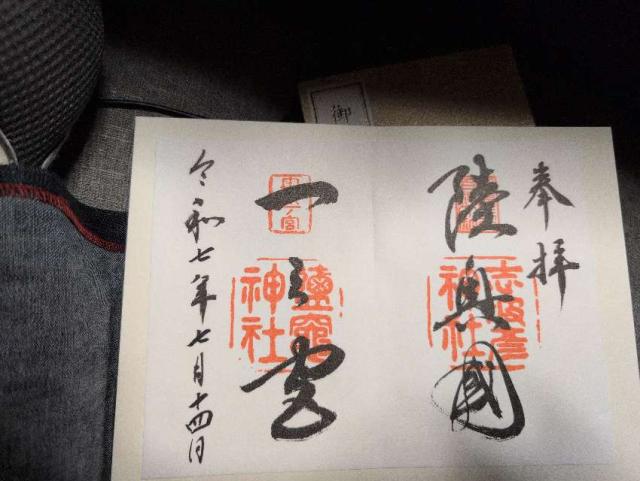 奉拝
陸奥國
志波彦
神社
一之宮
鹽竈
神社
令和七年七月十四日
御